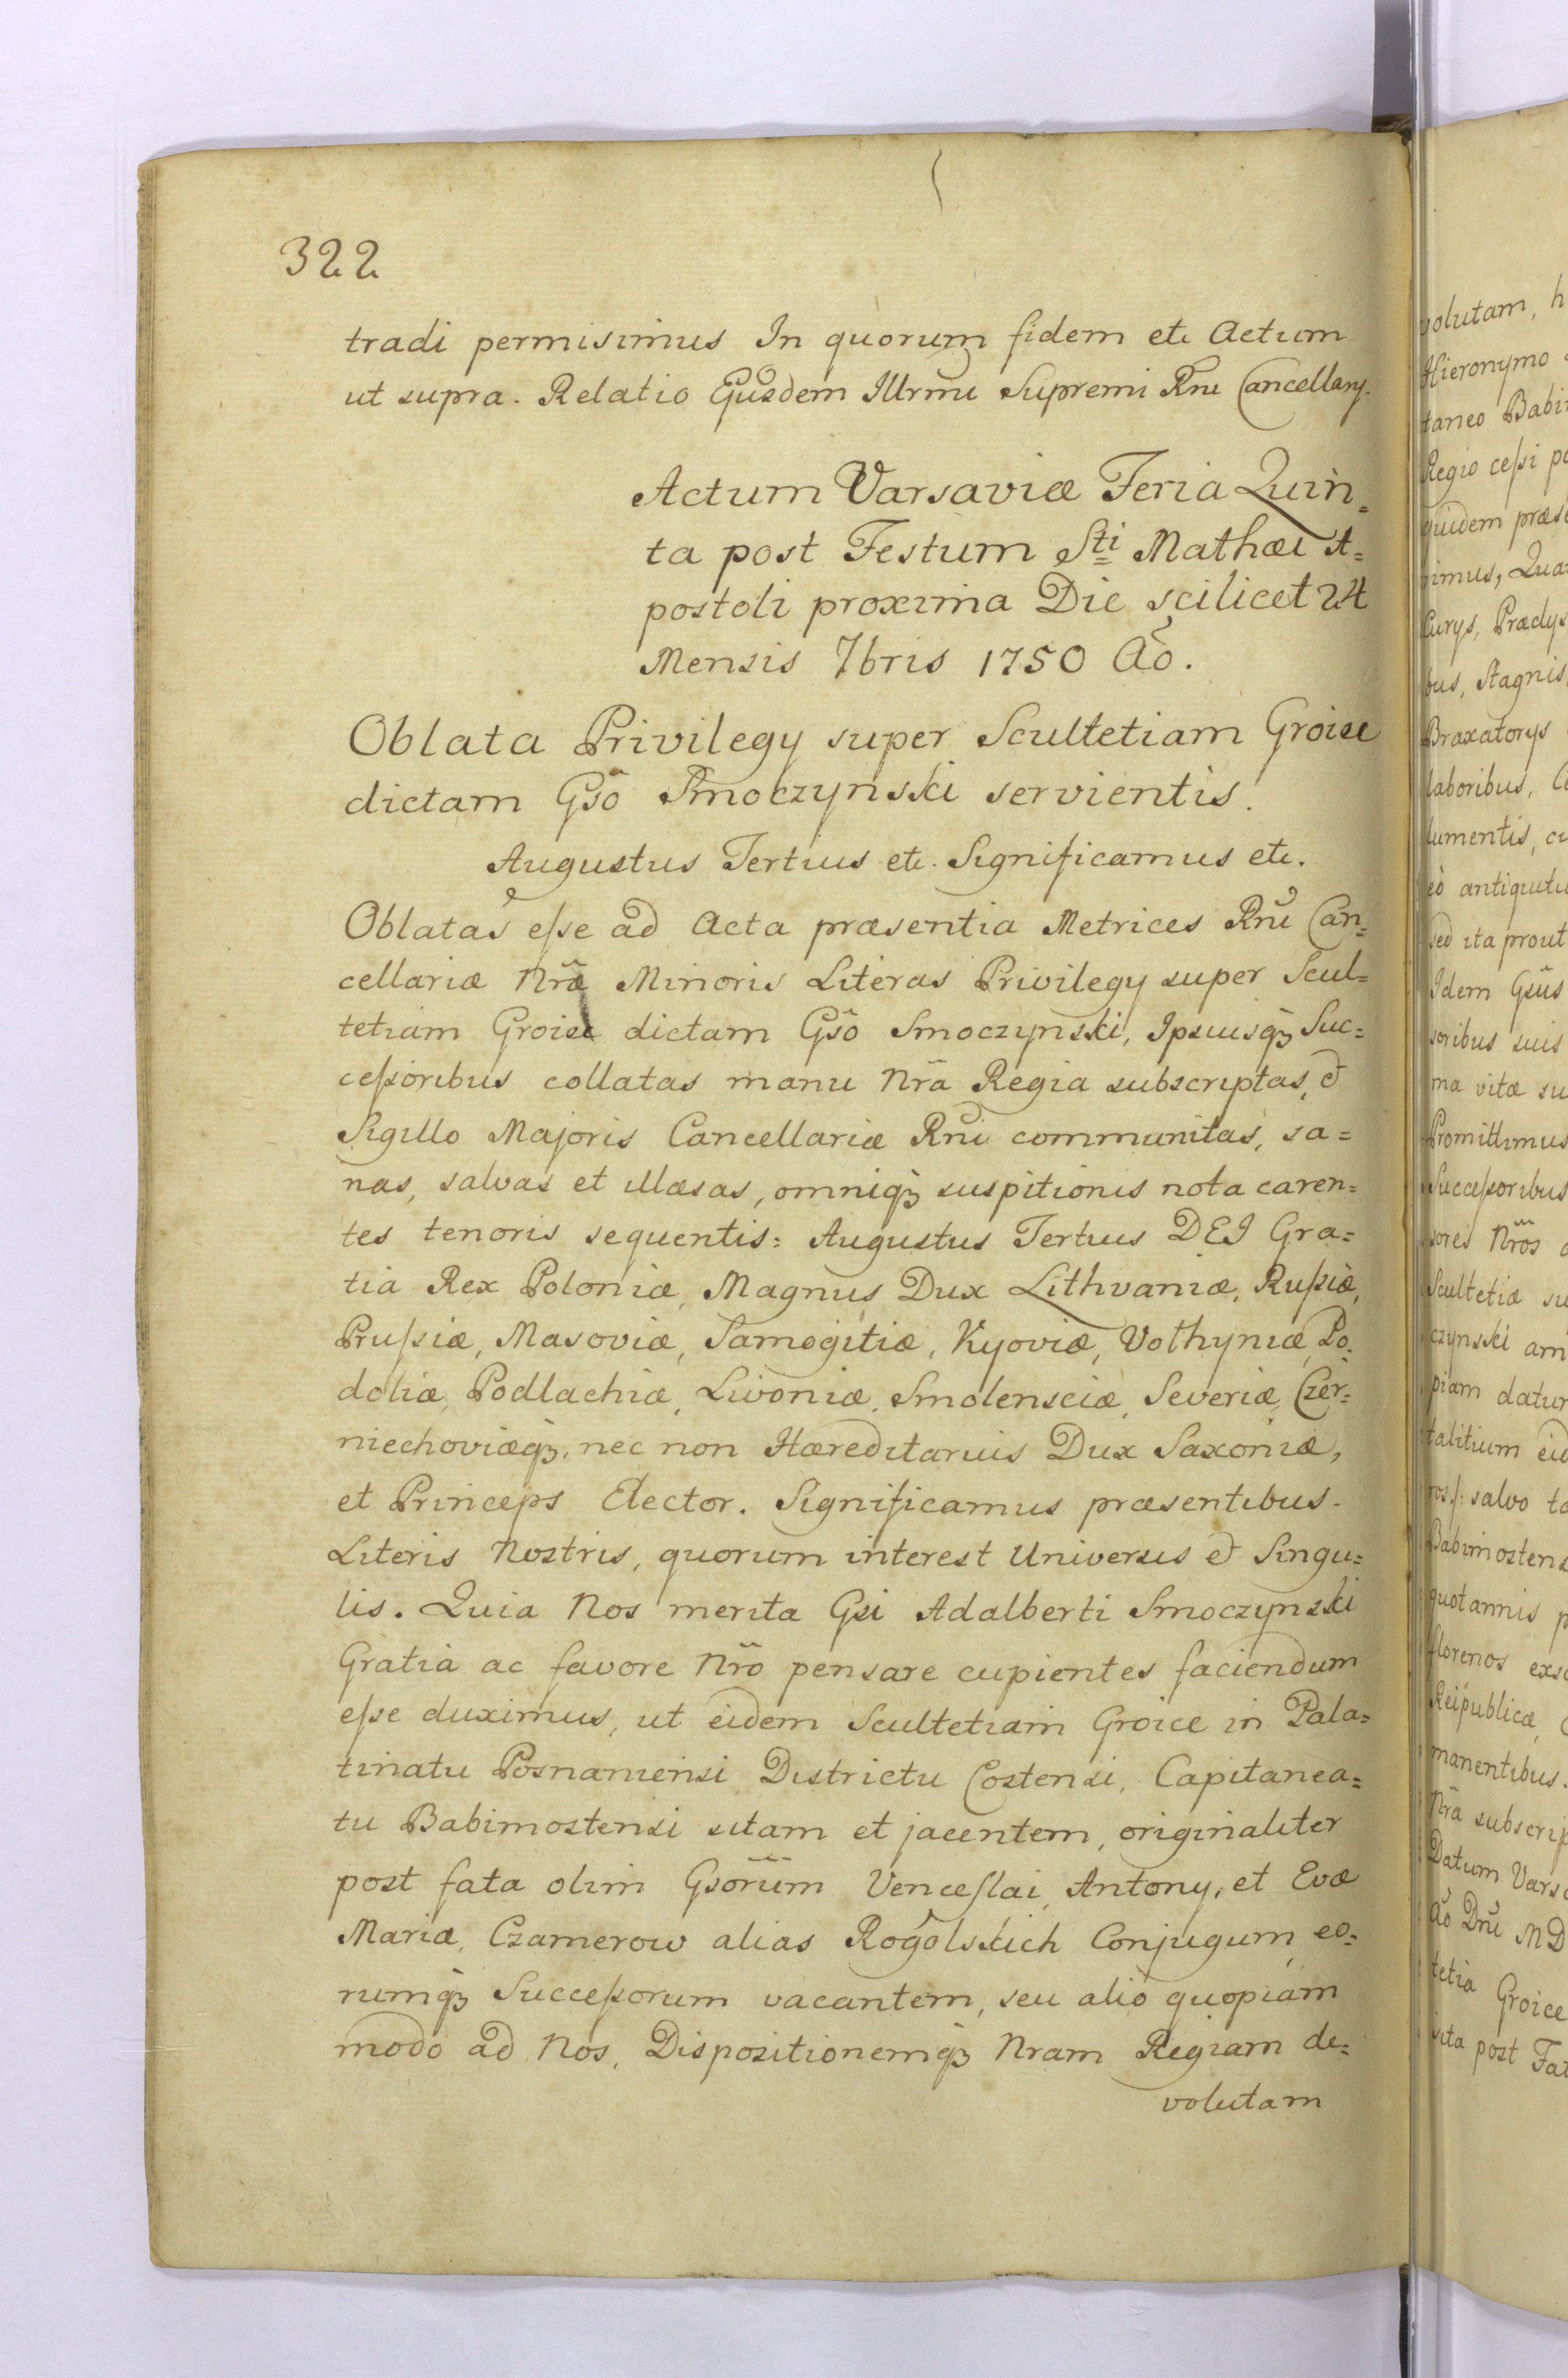 322
tradi permisimus In quorum fidem etc Actum
ut supra. Relatio Ejusdem Illrmi Supremi Rni Cancellarij.
Actum Varsaviæ Feria Quin=
ta post Festum Sti Mathæi A=
postoli proxima Die scilicet 24
Mensis 7bris 1750 Ao.
Oblata Privilegij super Scultetiam Groice
dictam Gso Smoczynski servientis.
Augustus Tertius etc. Significamus etc.
Oblatas esse ad Acta præsentia Metrices Rni Can=
cellariæ Nræ Minoris Literas Privilegij super Scul=
tetiam Groice dictam Gso Smoczynski, Ipsiusq̃ Suc=
cessoribus collatas manu Nra Regia subscriptas, et
Sigillo Majoris Cancellariæ Rni communitas, sa=
nas, salvas et illæsas, omniq̃ suspitionis nota caren=
tes tenoris sequentis: Augustus Tertius DEI Gra=
tia Rex Poloniæ, Magnus Dux Lithvaniæ, Russiæ,
Prussiæ, Masoviæ, Samogitiæ, Kyoviæ, Volhyniæ, Po=
doliæ, Podlachiæ, Livoniæ, Smolensciæ, Severiæ, Czer=
niechoviæq̃, nec non Hæreditarius Dux Saxoniæ,
et Princeps Elector. Significamus præsentibus
Literis Nostris, quorum interest Universis et Singu=
lis. Quia Nos merita Gsi Adalberti Smoczynski
Gratia ac favore Nro pensare cupientes faciendum
esse duximus, ut eidem Scultetiam Groice in Pala=
tinatu Posnaniensi Districtu Costensi, Capitanea=
tu Babimostensi sitam et jacentem, originaliter
post fata olim Gsorum Venceslai, Antonij, et Evæ
Mariæ, Czamerow alias Rogolskich Conjugum, eo=
rumq̃ Successorum vacantem, seu alio quopiam
modo ad Nos, Dispositionemq̃ Nram Regiam de=
volutam
volutam, h
Hieronymo
taneo Babi
Regio cessi
quidem præs
Curijs, Prædijs
bus, Stagnis,
Braxatorijs
laboribus,
eo antiquitu
sed ita prout
Idem Gsus
soribus suis
ma vitæ su
Promittimus
Successoribus
sores Nros
Scultetiæ su
czynski am
piam datur
talitium eid
salvo
Babimostens
quotannis p
florenos
Reipublicæ,
manentibus.
Nra subscrip
Datum Vars
Ao Dni MD
tetia Groice
vita post Fat